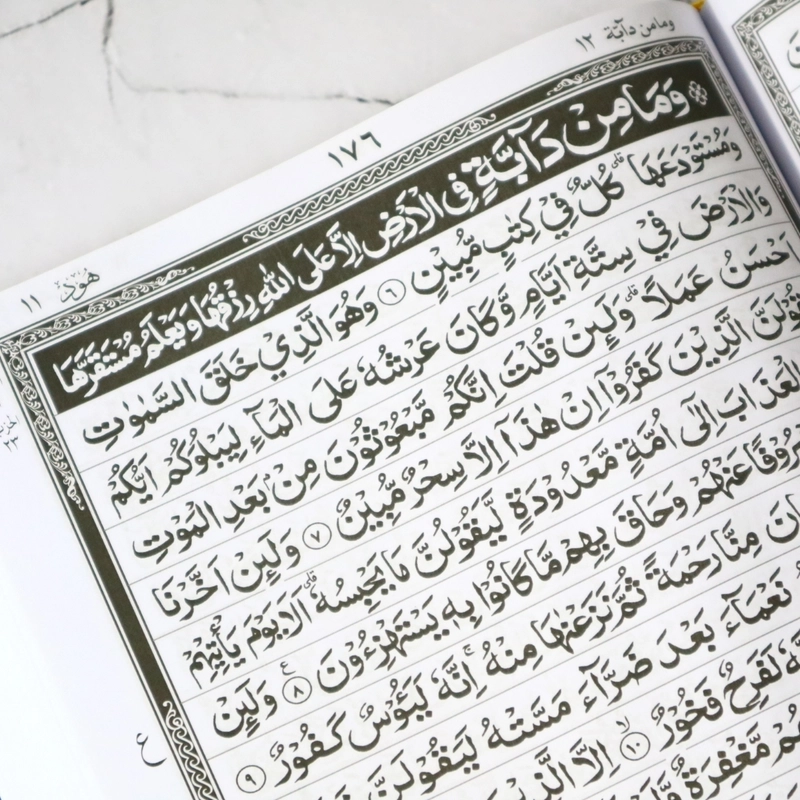 ومامن دآبة ١٢
١٧٦
هُوْد ١١
وَمَا مِنْ دَآبَّةٍ فِي الْاَرْضِ اِلَّا عَلَى اللّٰهِ رِزْقُهَا وَيَعْلَمُ مُسْتَقَرَّهَا
وَمُسْتَوْدَعَهَا ۗ كُلٌّ فِيْ كِتٰبٍ مُّبِيْنٍ ٦ وَهُوَ الَّذِيْ خَلَقَ السَّمٰوٰتِ
وَالْاَرْضَ فِيْ سِتَّةِ اَيَّامٍ وَّكَانَ عَرْشُهٗ عَلَى الْمَاۤءِ لِيَبْلُوَكُمْ اَيُّكُمْ
اَحْسَنُ عَمَلًا ۗ وَلَىِٕنْ قُلْتَ اِنَّكُمْ مَّبْعُوْثُوْنَ مِنْۢ بَعْدِ الْمَوْتِ
الَّذِيْنَ كَفَرُوْٓا اِنْ هٰذَآ اِلَّا سِحْرٌ مُّبِيْنٌ ٧ وَلَىِٕنْ اَخَّرْنَا
الْعَذَابَ اِلٰٓى اُمَّةٍ مَّعْدُوْدَةٍ لَّيَقُوْلُنَّ مَا يَحْبِسُهٗ ۗ اَلَا يَوْمَ يَأْتِيْهِمْ
عَنْهُمْ وَحَاقَ بِهِمْ مَّا كَانُوْا بِهٖ يَسْتَهْزِءُوْنَ ٨ وَلَىِٕنْ
مِنَّا رَحْمَةً ثُمَّ نَزَعْنٰهَا مِنْهُ اِنَّهٗ لَيَـُٔوْسٌ كَفُوْرٌ ٩
نَعْمَاۤءَ بَعْدَ ضَرَّاۤءَ مَسَّتْهُ لَيَقُوْلَنَّ
لَفَرِحٌ فَخُوْرٌ ١٠ اِلَّا
مَّغْفِرَةٌ
ع